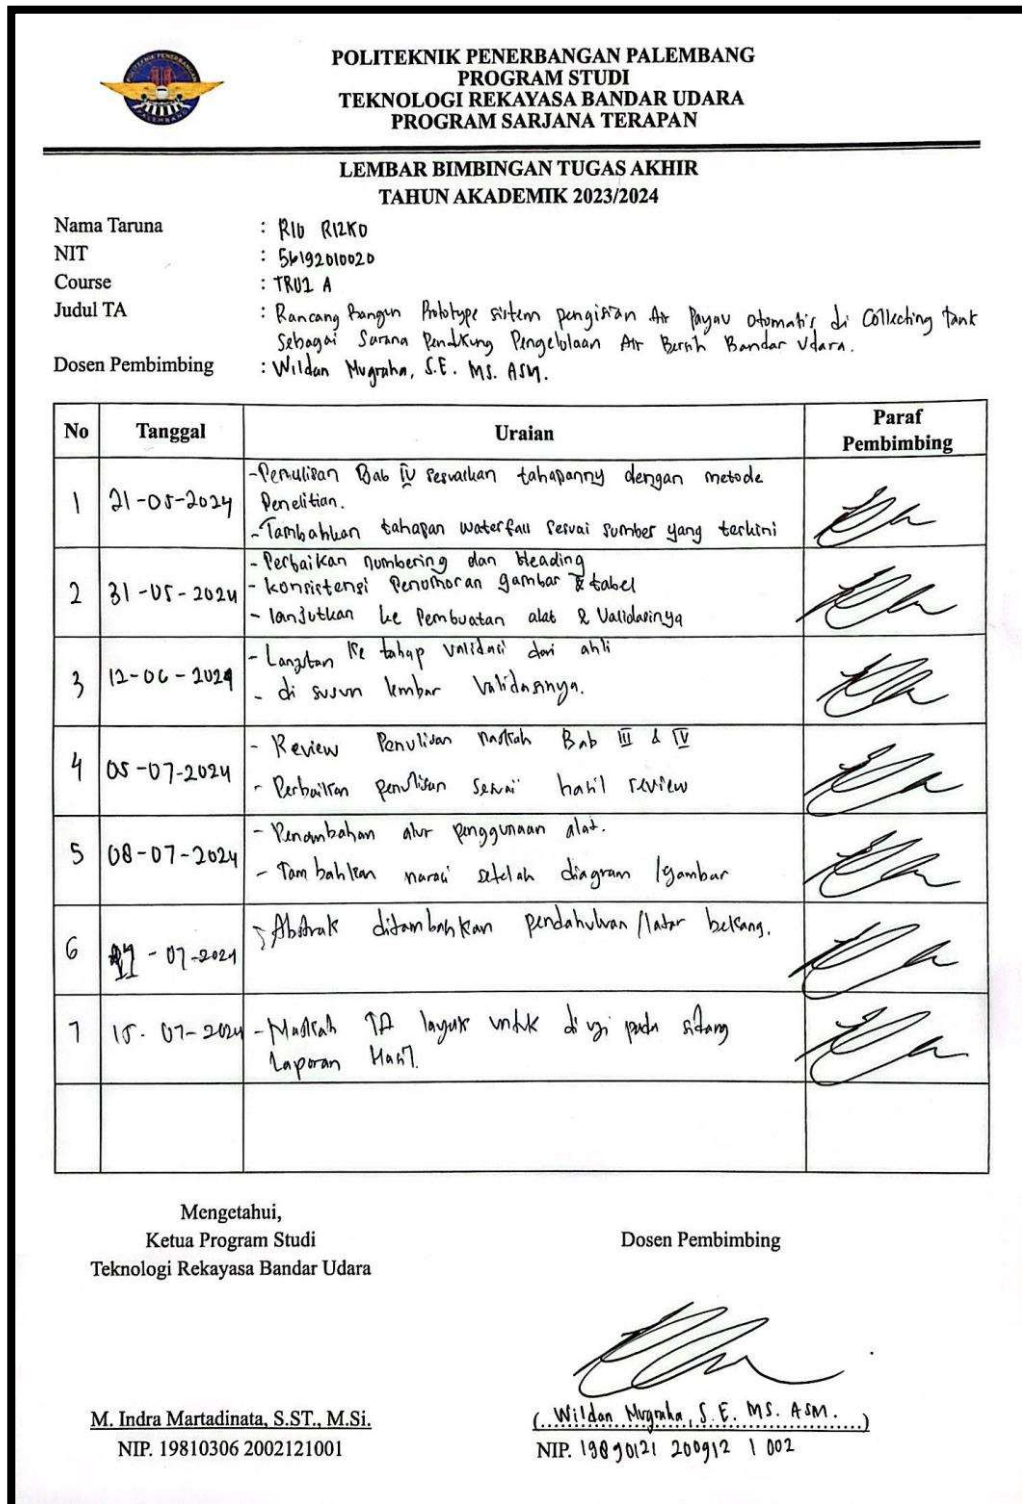 POLITEKNIK PENERBANGAN PALEMBANG
PROGRAM STUDI
TEKNOLOGI REKAYASA BANDAR UDARA
PROGRAM SARJANA TERAPAN
LEMBAR BIMBINGAN TUGAS AKHIR
TAHUN AKADEMIK 2023/2024
Nama Taruna : RIO RIZKO
NIT : 56192010020
Course : TRU1 A
Judul TA : Rancang Bangun Prototype sistem pengisian Air Payau otomatis di Collecting tank
Sebagai Sarana Pendukung Pengelolaan Air Bersih Bandar Udara.
Dosen Pembimbing : Wildan Nugraha, S.E. MS. ASM.
No Tanggal Uraian Paraf Pembimbing
1 21-05-2024 -Penulisan Bab IV sesuaikan tahapanny dengan metode
Penelitian.
-Tambahkan tahapan waterfall sesuai sumber yang terkini
2 31-05-2024 - Perbaikan numbering dan Heading
- konsistensi Penomoran gambar & tabel
- lanjutkan ke Pembuatan alat & Validasinya
3 12-06-2024 - Lanjutan ke tahap validasi dari ahli
- di susun lembar Validasinya.
4 05-07-2024 - Review Penulisan naskah Bab III & IV
- Perbaikan penulisan sesuai hasil review
5 08-07-2024 - Penambahan alur penggunaan alat.
- Tambahkan narasi setelah diagram /gambar
6 11-07-2024 - Abstrak ditambahkan pendahuluan/latar belkang.
7 15-07-2024 - Naskah TA layak untuk di uji pada sidang
Laporan Hasil.
Mengetahui,
Ketua Program Studi
Teknologi Rekayasa Bandar Udara
Dosen Pembimbing
M. Indra Martadinata, S.ST., M.Si.
NIP. 19810306 2002121001
(Wildan Nugraha, S.E. MS. ASM.)
NIP. 19890121 200912 1 002